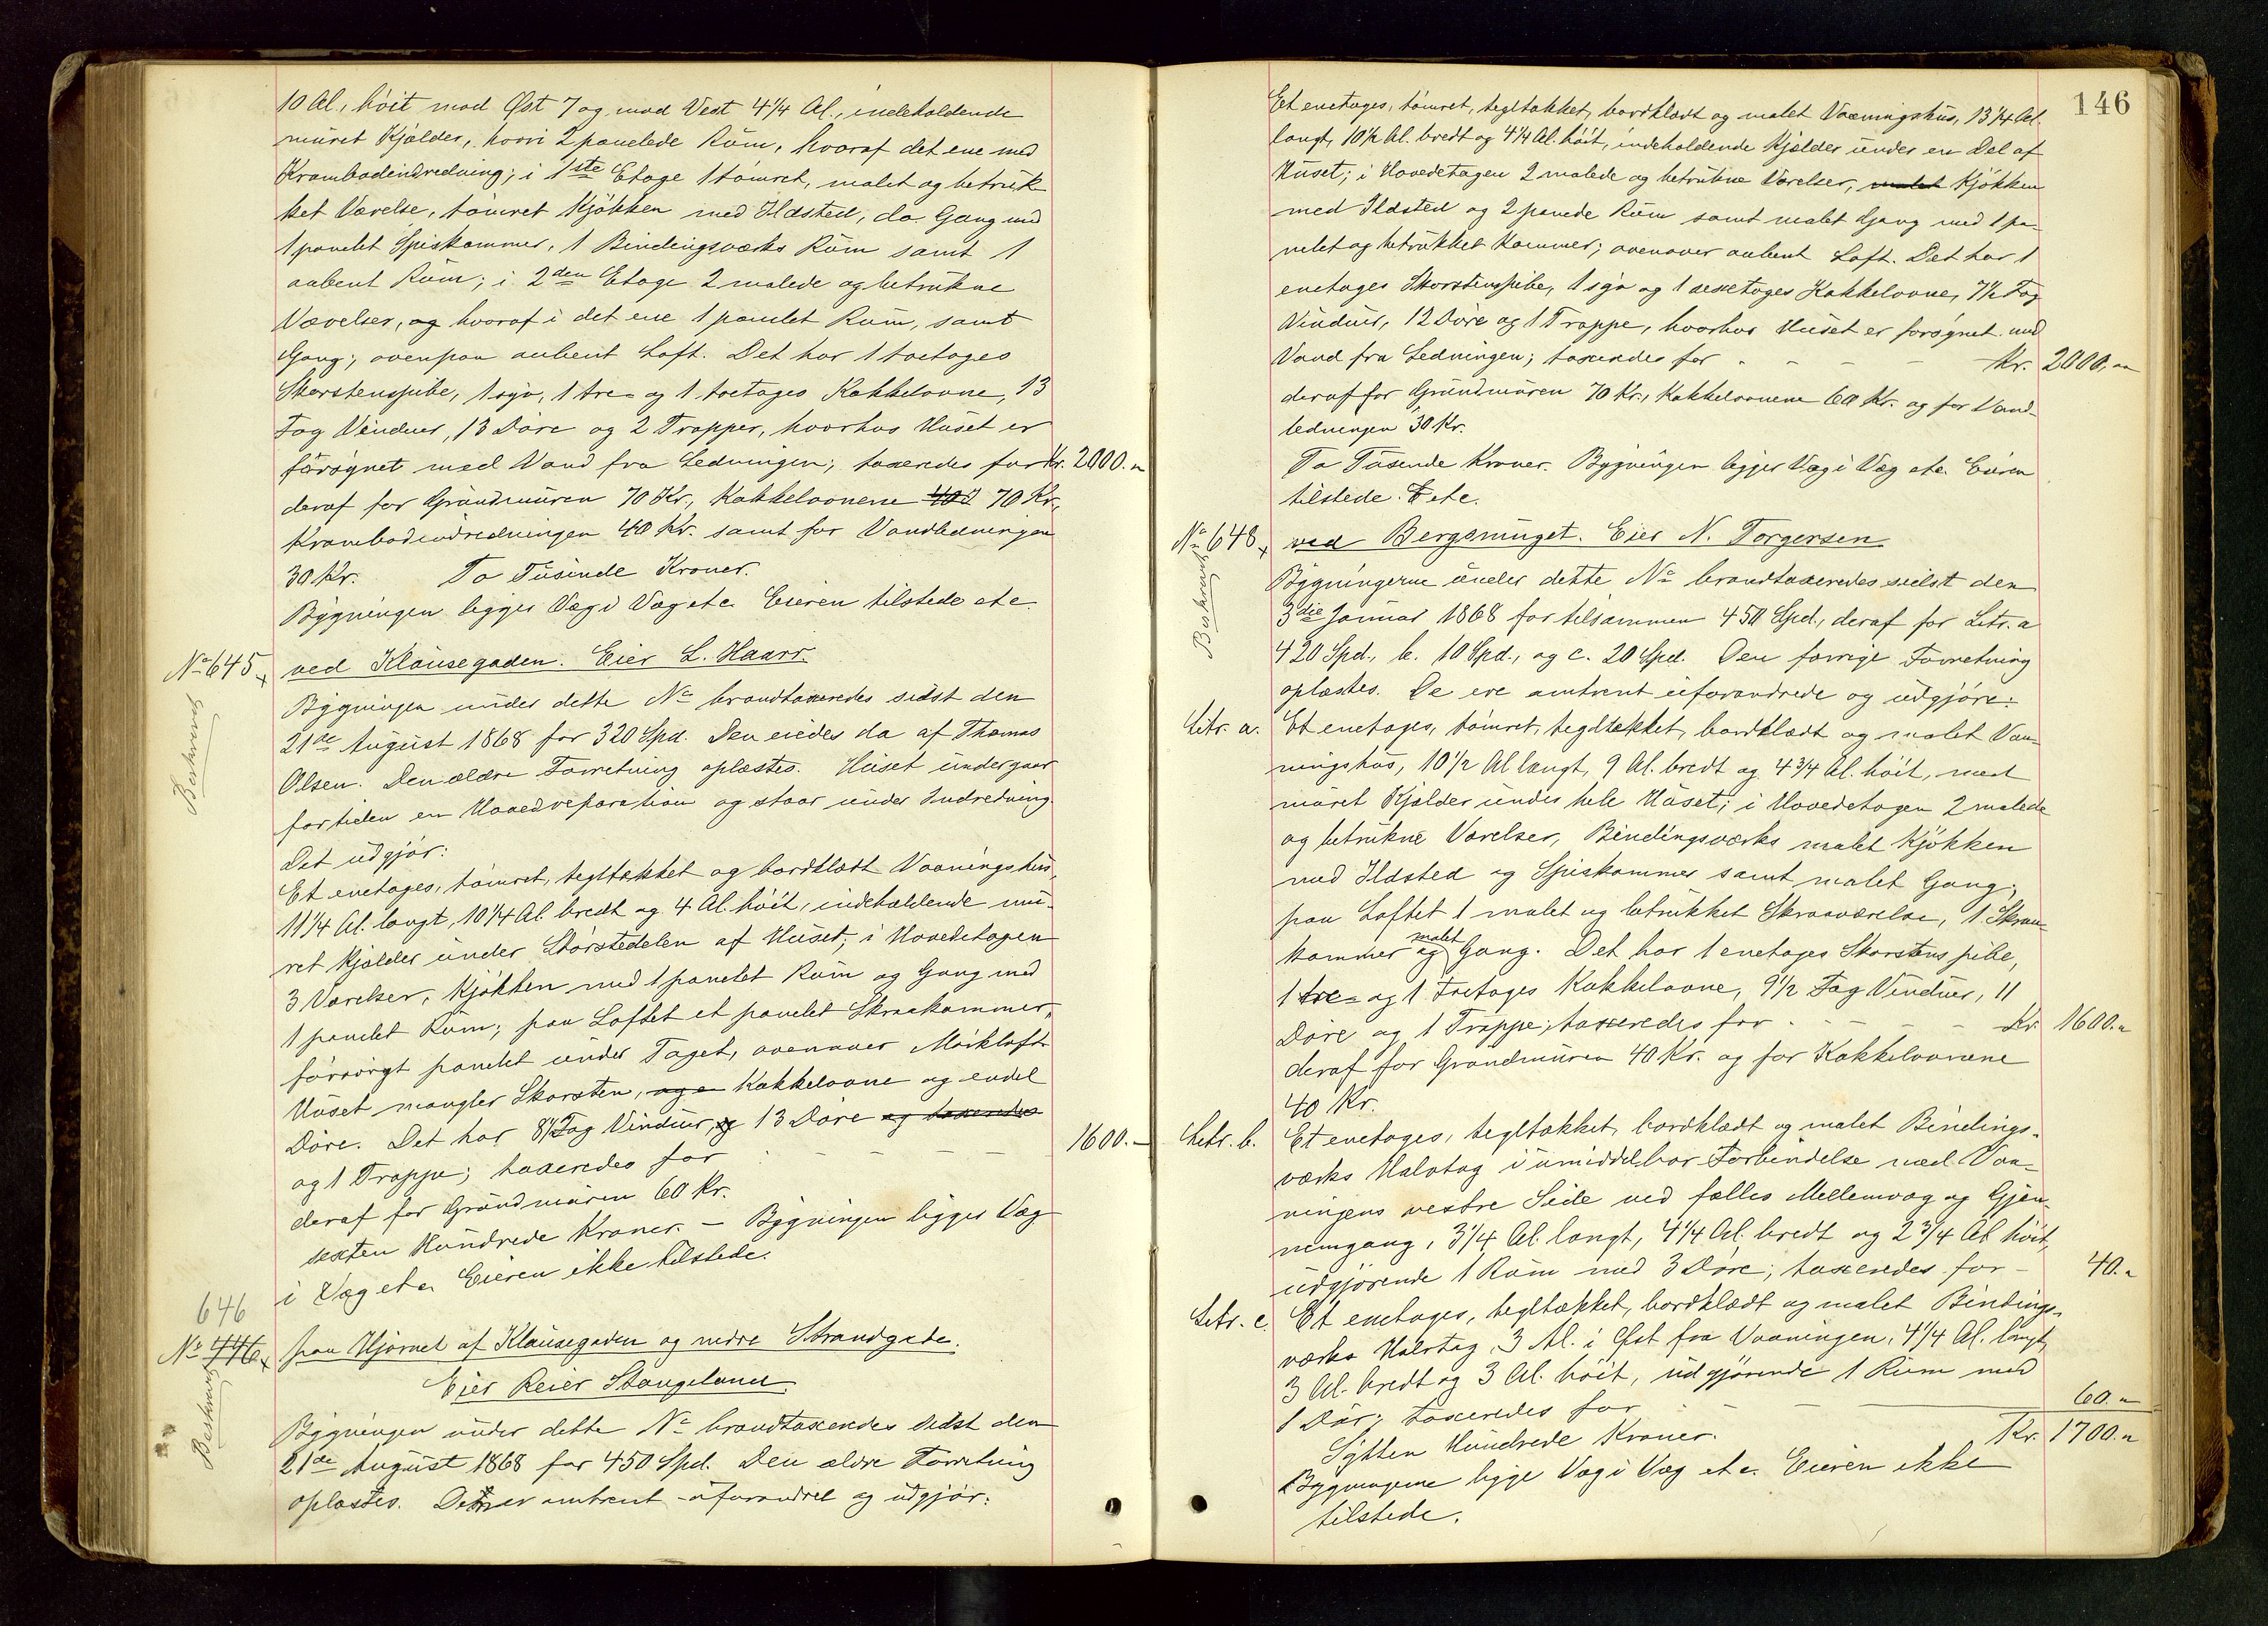 10 Al., høit mod Øst 7 og mod Vest 4 1/4 Al., indeholdende
muret Kjælder, hvori 2 panelede Rum, hvoraf det ene med
Krambodindredning; i 1ste Etage 1 tømret, malet og betruk-
ket Værelse, tømret Kjøkken med Ildsted, do. Gang med
1 panelet Spiskammer, 1 Bindingsværks Rum samt 1
aabent Rum; i 2den Etage 2 malede og betrukne
Værelser, og hvoraf i det ene 1 panelet Rum, samt
Gang; ovenpaa aabent Loft. Det har 1 toetages
Skorstenspibe, 1 sya, 1 tre- og 1 toetages Kakkelovne, 13
Fag Vinduer, 13 Døre og 2 Trapper, hvorhos Huset er
forsynet med Vand fra Ledningen; taxeredes for Kr. 2000.„
deraf for Grundmuren 70 Kr., Kakkelovnene 70 Kr.,
Krambodindredningen 40 Kr. samt for Vandledningen
30 Kr. To Tusinde Kroner.
Bygningen ligger Væg i Væg etc. Eieren tilstede etc.
No 645 ved Klausegaden. Eier L. Haarr.
Beskrevet
Bygningen under dette No brandtaxeredes sidst den
21de August 1868 for 320 Spd. Den eiedes da af Thomas
Olsen. Den ældre Forretning oplæstes. Huset undergaar
fortiden en Hovedreparation og staar under Indredning.
Det udgjør:
Et enetages, tømret, tegltækket og bordklædt Vaaningshus,
11 1/4 Al. langt, 10 1/4 Al. bredt og 4 Al. høit, indeholdende mu-
ret Kjælder under Størstedelen af Huset; i Hovedetagen
3 Værelser, Kjøkken med 1 panelet Rum og Gang med
1 panelet Rum; paa Loftet et panelet Skraakammer,
forøvrigt panelet under Taget, ovenover Mørkloft.
Huset mangler Skorsten, Kakkelovne og endel
Døre. Det har 8 1/2 Fag Vinduer, 13 Døre og taxeredes
og 1 Trappe; taxeredes for - - - - 1600.-
deraf for Grundmuren 60 Kr.
sexten Hundrede Kroner. - Bygningen ligger Væg
i Væg etc. Eieren ikke tilstede.
646
No 446 paa Hjørnet af Klausegaden og nedre Strandgade.
Beskrevet
Eier Reier Stangeland.
Bygningen under dette No brandtaxeredes sidst den
21de August 1868 for 450 Spd. Den ældre Forretning
oplæstes. Den er omtrent uforandret og udgjør:
146
Et enetages, tømret, tegltækket, bordklædt og malet Vaaningshus, 13 1/4 Al.
langt, 10 1/2 Al. bredt og 4 1/4 Al. høit, indeholdende Kjælder under en Del af
Huset; i Hovedetagen 2 malede og betrukne Værelser, malet Kjøkken
med Ildsted og 2 panede Rum samt malet Gang med 1 pa-
nelet og betrukket Kammer; ovenover aabent Loft. Det har 1
enetages Skorstenspibe, 1 sya og 1 sexetages Kakkelovne, 7 1/2 Fag
Vinduer, 12 Døre og 1 Trappe, hvorhos Huset er forsynet med
Vand fra Ledningen; taxeredes for - - - Kr. 2000,„
deraf for Grundmuren 70 Kr., Kakkelovnene 60 Kr. og for Vand-
ledningen 30 Kr.
To Tusende Kroner. Bygningen ligger Væg i Væg etc. Eieren
tilstede. etc.
No 648 ved Bergsmuget. Eier N. Torgersen
Beskrevet
Bygningerne under dette No brandtaxeredes sidst den
3die Januar 1868 for tilsammen 450 Spd., deraf for Litr. a
420 Spd., b. 10 Spd., og c. 20 Spd. Den forrige Forretning
oplæstes. De ere omtrent uforandrede og udgjøre:
Litr. a. Et enetages, tømret, tegltækket, bordklædt og malet Vaa-
ningshus, 10 1/2 Al langt, 9 Al. bredt og 4 3/4 Al. høit, med
muret Kjælder under hele Huset; i Hovedetagen 2 malede
og betrukne Værelser, Bindingsværks malet Kjøkken
med Ildsted og Spiskammer samt malet Gang;
paa Loftet 1 malet og betrukket Skraaværelse, 1 Skraa-
kammer og malet Gang. Det har 1 enetages Skorstens pibe,
1 tre- og 1 toetages Kakkelovne, 9 1/2 Fag Vinduer, 11
Døre og 1 Trappe; taxeredes for - - - Kr. 1600.„
deraf for Grundmuren 40 Kr. og for Kakkelovnene
40 Kr.
Litr. b. Et enetages, tegltækket, bordklædt og malet Bindings-
værks Halvtag i umiddelbar Forbindelse med Vaa-
ningens vestre Side ved fælles Mellemvæg og Gjen-
nemgang, 3 1/4 Al. langt, 4 1/4 Al. bredt og 2 3/4 Al. høit,
udgjørende 1 Rum med 3 Døre; taxeredes for - 40.„
Litr. c. Et enetages, tegltækket, bordklædt og malet Bindings-
værks Halvtag, 3 Al. i Øst fra Vaaningen, 4 1/4 Al. langt,
3 Al. bredt og 3 Al. høit, udgjørende 1 Rum med
1 Dør; taxeredes for - - - 60.„
Sytten Hundrede Kroner. Kr. 1700.„
Bygningerne ligge Væg i Væg etc. Eieren ikke
tilstede.